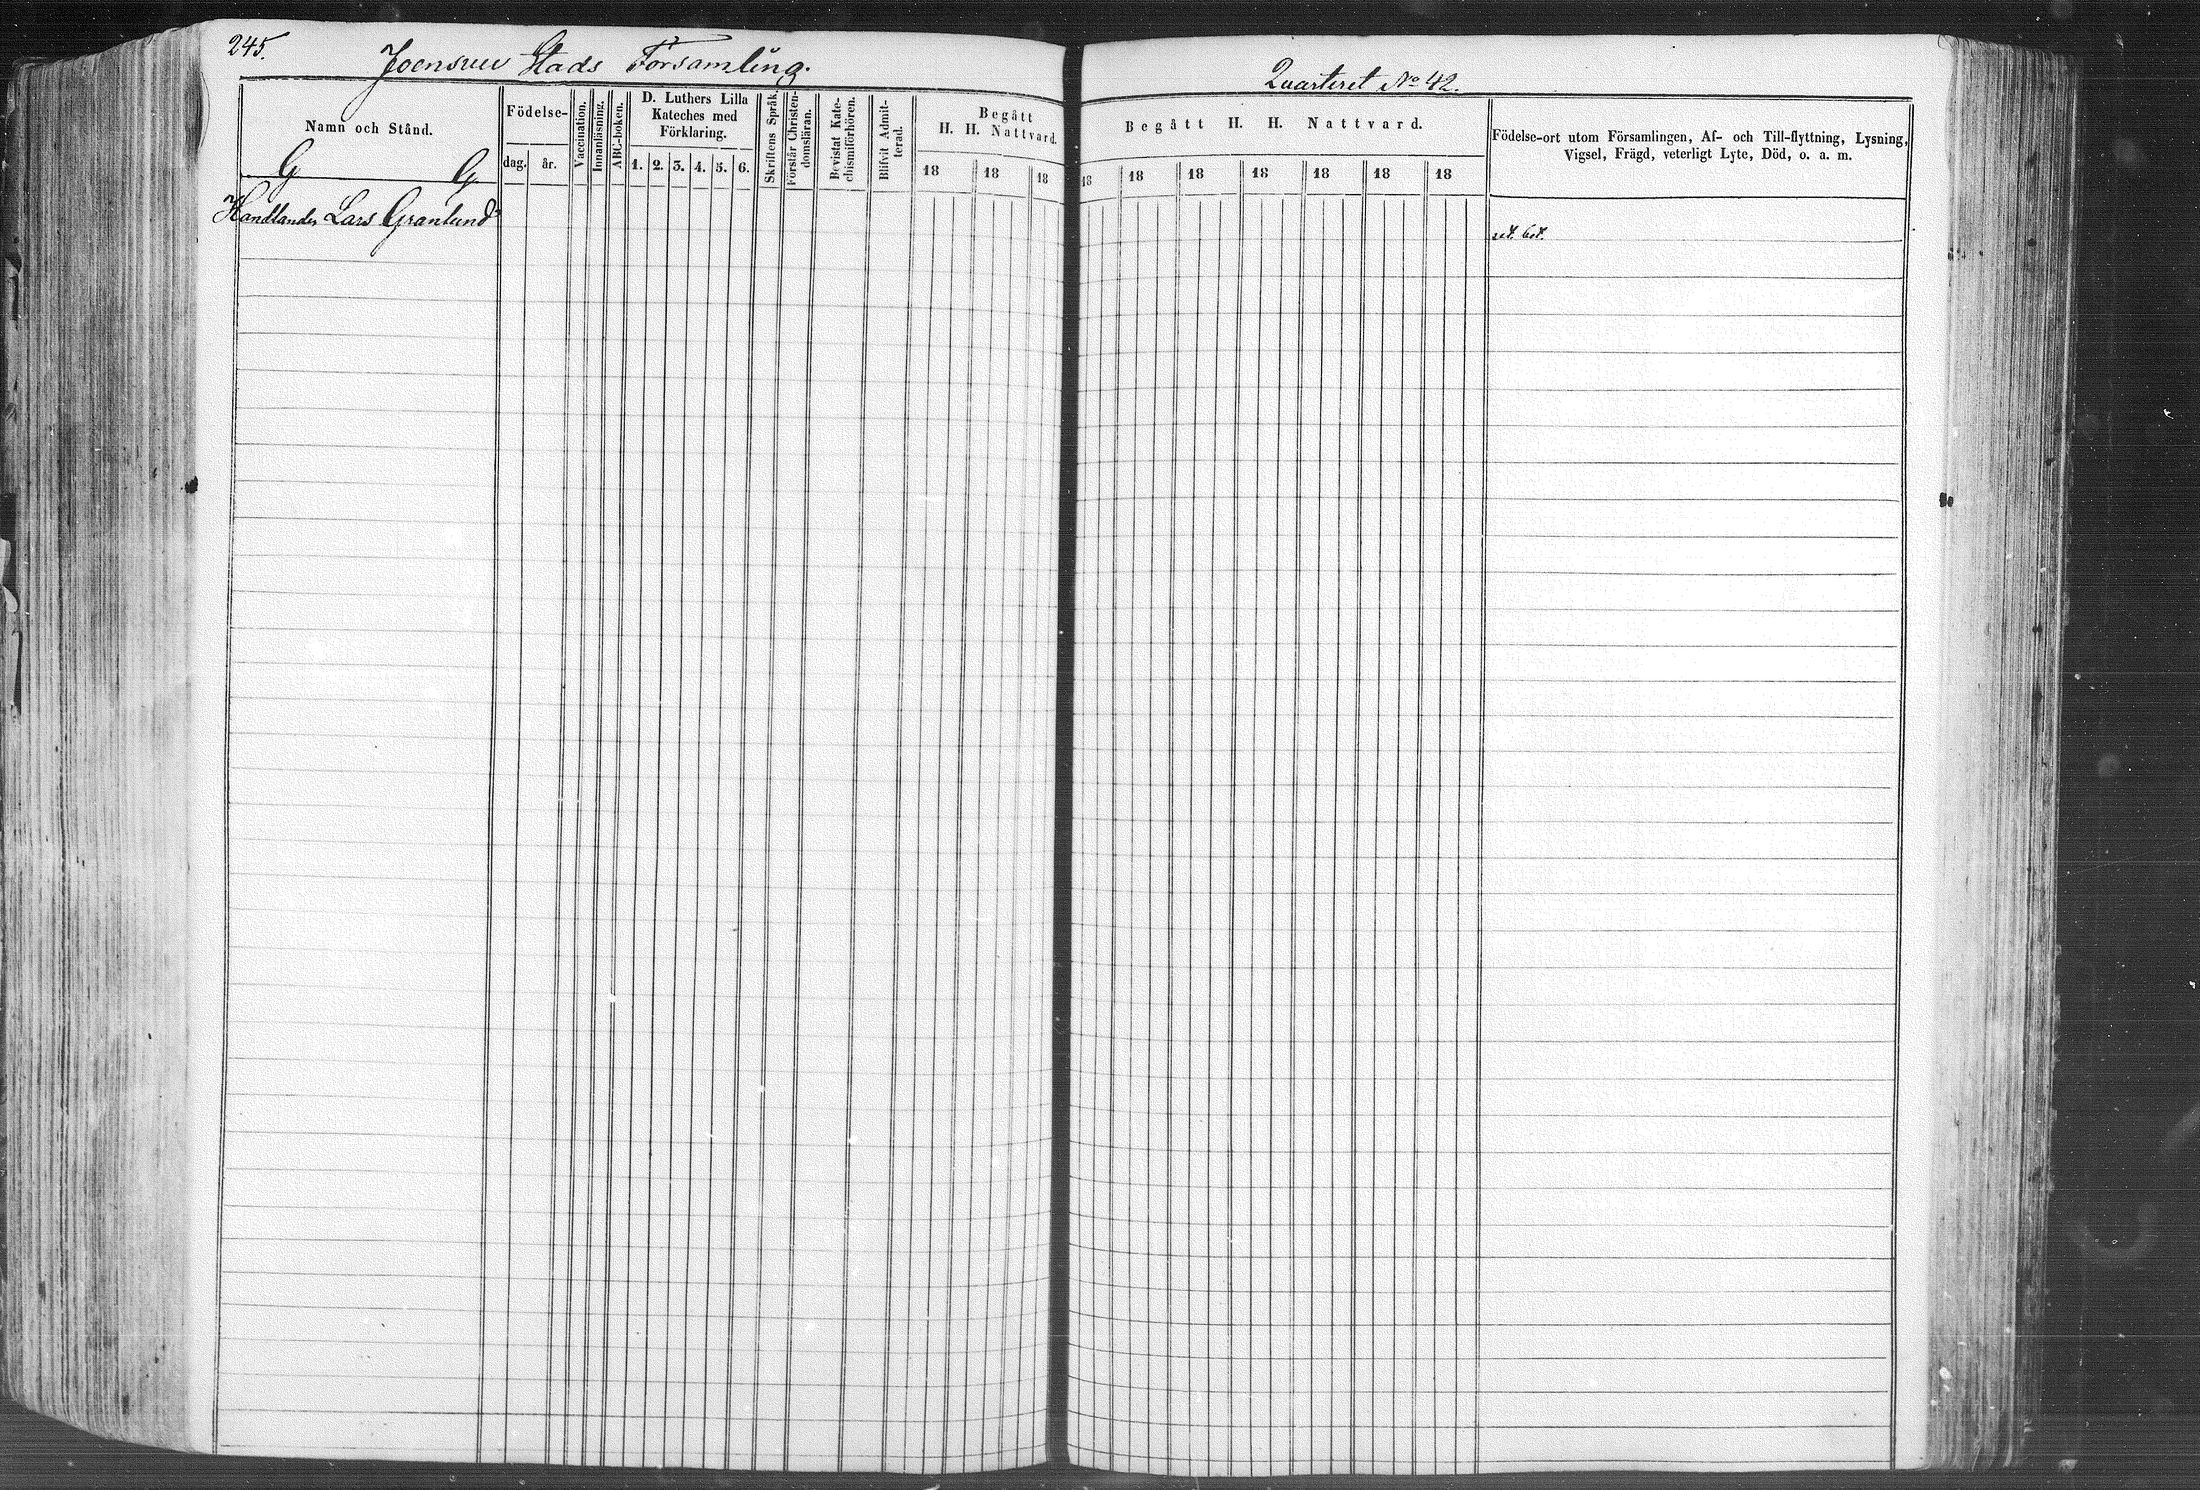 245.
Joensuu Stads Församling.
Quarteret No 42.
Namn och Stånd.
G G
Födelse-
dag. år.
Vaccination.
Innanläsning.
ABC-boken.
D. Luthers Lilla
Kateches med
Förklaring.
1. 2. 3. 4. 5. 6.
Skriftens Språk.
Förstår Christen-
domsläran.
Bevistat Kate-
chismiförhören.
Blifvit Admit-
terad.
Begått
H. H. Nattvard.
18 18 18
Begått H. H. Nattvard.
18 18 18 18 18 18 18
Födelse-ort utom Församlingen, Af- och Till-flyttning, Lysning,
Vigsel, Frägd, veterligt Lyte, Död, o. a. m.
Handlanden Lars Granlund